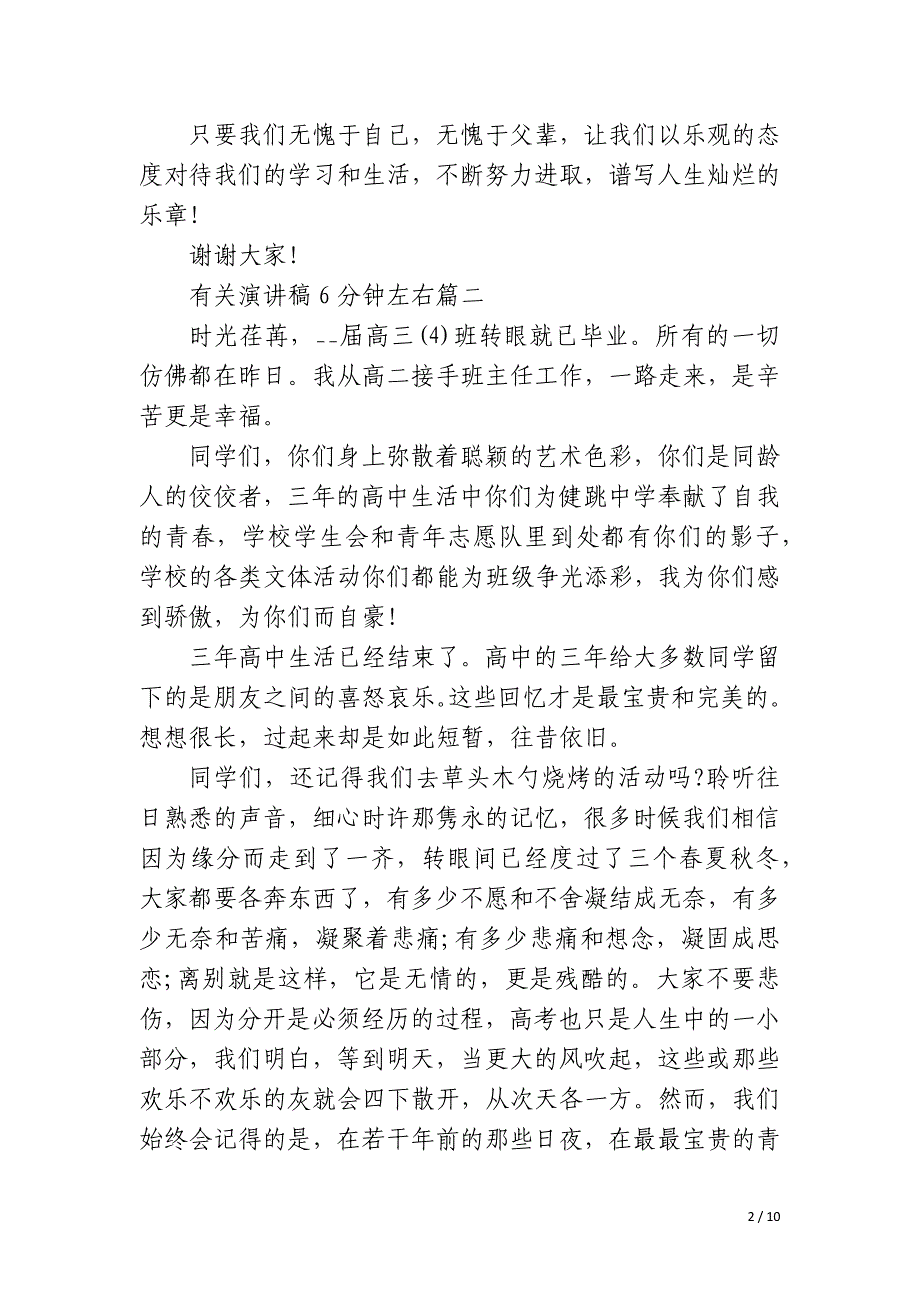 只要我们无愧于自己，无愧于父辈，让我们以乐观的态
度对待我们的学习和生活，不断努力进取，谱写人生灿烂的
乐章！
谢谢大家！
有关演讲稿6分钟左右篇二
时光荏苒，__届高三(4)班转眼就已毕业。所有的一切
仿佛都在昨日。我从高二接手班主任工作，一路走来，是辛
苦更是幸福。
同学们，你们身上弥散着聪颖的艺术色彩，你们是同龄
人的佼佼者，三年的高中生活中你们为健跳中学奉献了自我
的青春，学校学生会和青年志愿队里到处都有你们的影子，
学校的各类文体活动你们都能为班级争光添彩，我为你们感
到骄傲，为你们而自豪！
三年高中生活已经结束了。高中的三年给大多数同学留
下的是朋友之间的喜怒哀乐。这些回忆才是最宝贵和完美的。
想想很长，过起来却是如此短暂，往昔依旧。
同学们，还记得我们去草头木勺烧烤的活动吗?聆听往
日熟悉的声音，细心时许那隽永的记忆，很多时候我们相信
因为缘分而走到了一齐，转眼间已经度过了三个春夏秋冬，
大家都要各奔东西了，有多少不愿和不舍凝结成无奈，有多
少无奈和苦痛，凝聚着悲痛;有多少悲痛和想念，凝固成思
恋;离别就是这样，它是无情的，更是残酷的。大家不要悲
伤，因为分开是必须经历的过程，高考也只是人生中的一小
部分，我们明白，等到明天，当更大的风吹起，这些或那些
欢乐不欢乐的灰就会四下散开，从次天各一方。然而，我们
始终会记得的是，在若干年前的那些日夜，在最最宝贵的青
2 / 10